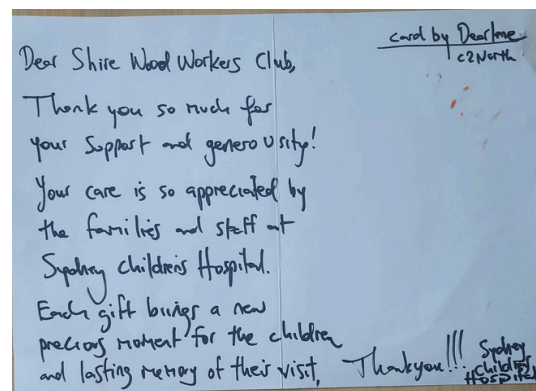 card by Dearlene
C2North
Dear Shire Wood Workers Club,
Thank you so much for
your support and generousity!
Your care is so appreciated by
the families and staff at
Sydney Children's Hospital.
Each gift brings a new
precious moment for the children
and lasting memory of their visit,
Thankyou!!!
Sydney
Children's
Hospital